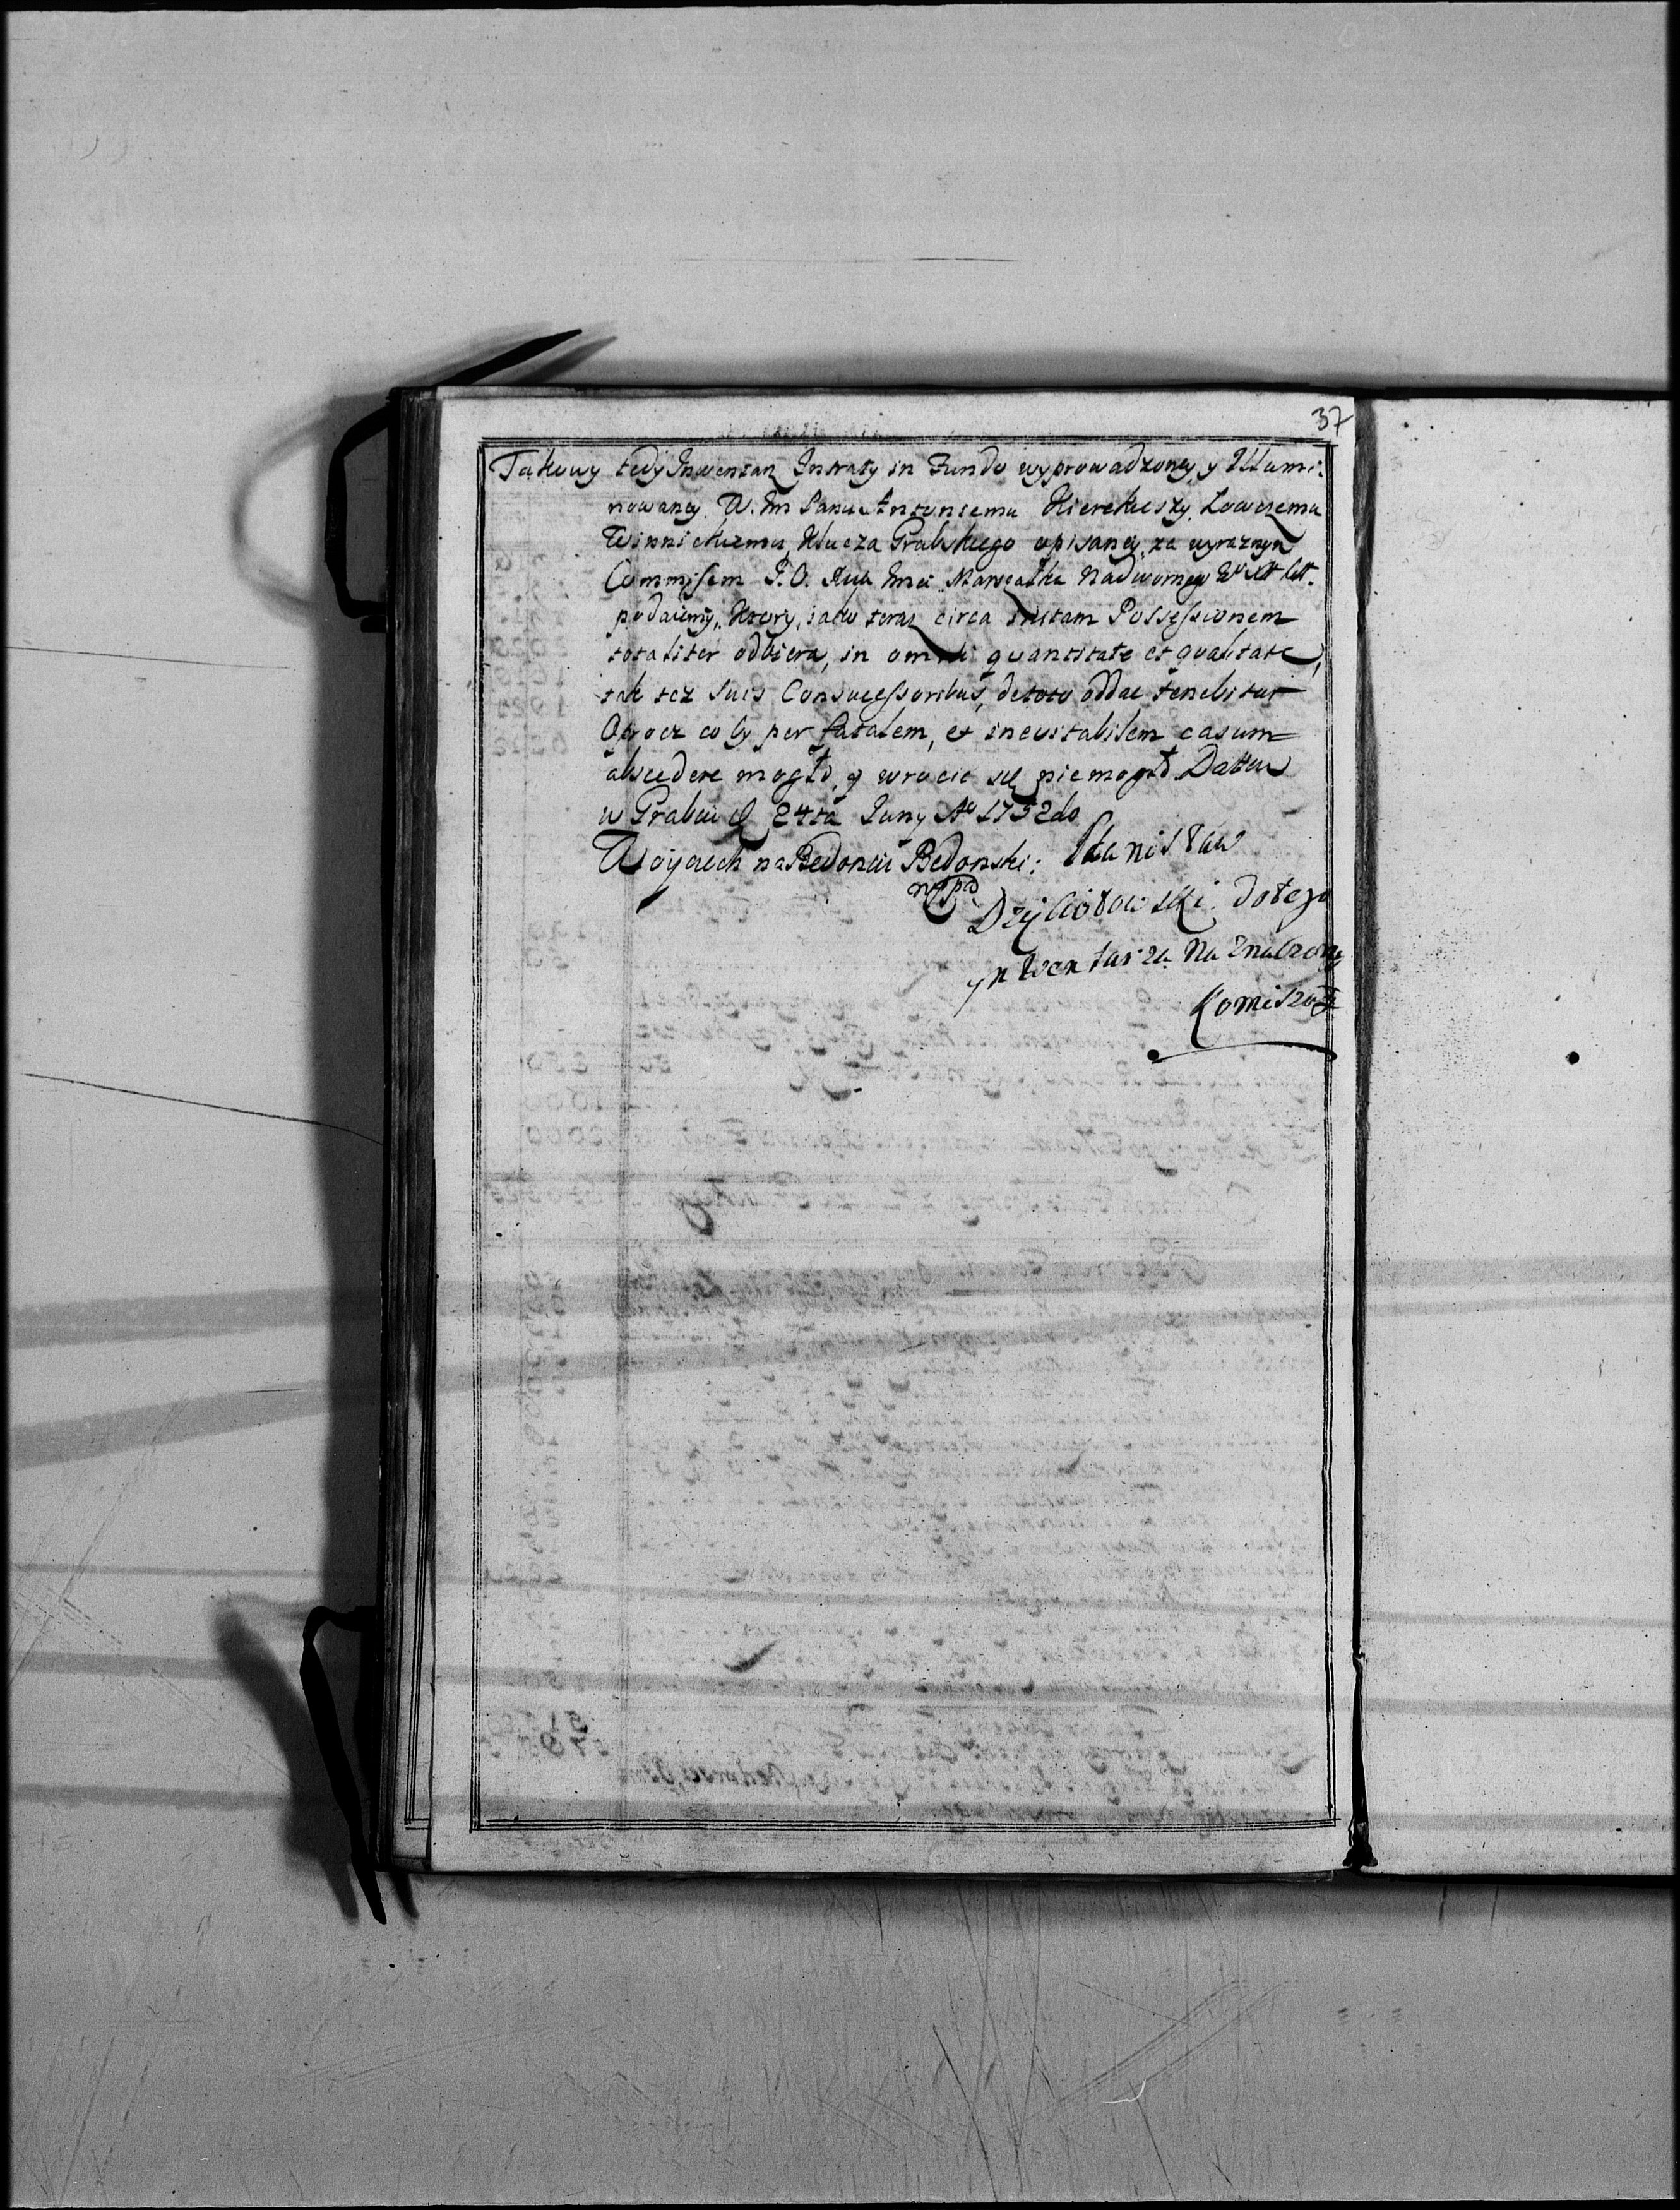 37
Takowy tedy Inwentarz Intraty in Fundo wyprowadzoney, y Illumi:
nowaney. W. Im Panu Antoniemu Kierekieszy. Łowczemu
Winnickiemu, Klucza Grabskiego opisaney, za wyraznym
Commissem J. O. Xcia Imci Marszałka Nadwornego W. X Litt.
podaiemy, Ktory, iako teraz circa istam Possessionem
totaliter odbiera, in omni quantitate et qualitate,
tak tez suis Consuccessoribus, detoto oddac tenebitur
Oprocz co by per fatalem, et inevitabilem casum
abscedere mogło, y wrocic się niemogło Datum
w Grabow D 24ta Juny Ao 1752do
Woyciech na Bedoniu Bedonski: Stanisław
mpp
Dzybołowski dotego
ynwentarza Naznaczony
Komisarz